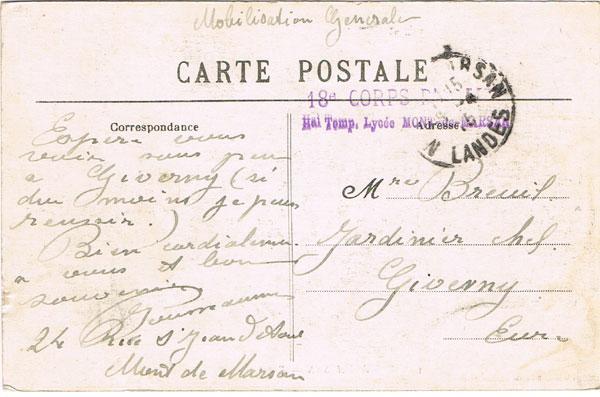 Mobilisation Générale
CARTE POSTALE
18e CORPS
Hal Temp. Lycée MONT-de-MARSAN
MARSAN
LANDES
Correspondance
Adresse
Espère vous
voir sous peu
à Giverny (si
du moins je puis
reussir.)
Bien cordialement
à vous et bon
souvenir
24 Rue St Jean d'Août
Mont de Marsan
Breuil
Jardinier chef
Giverny
Eure